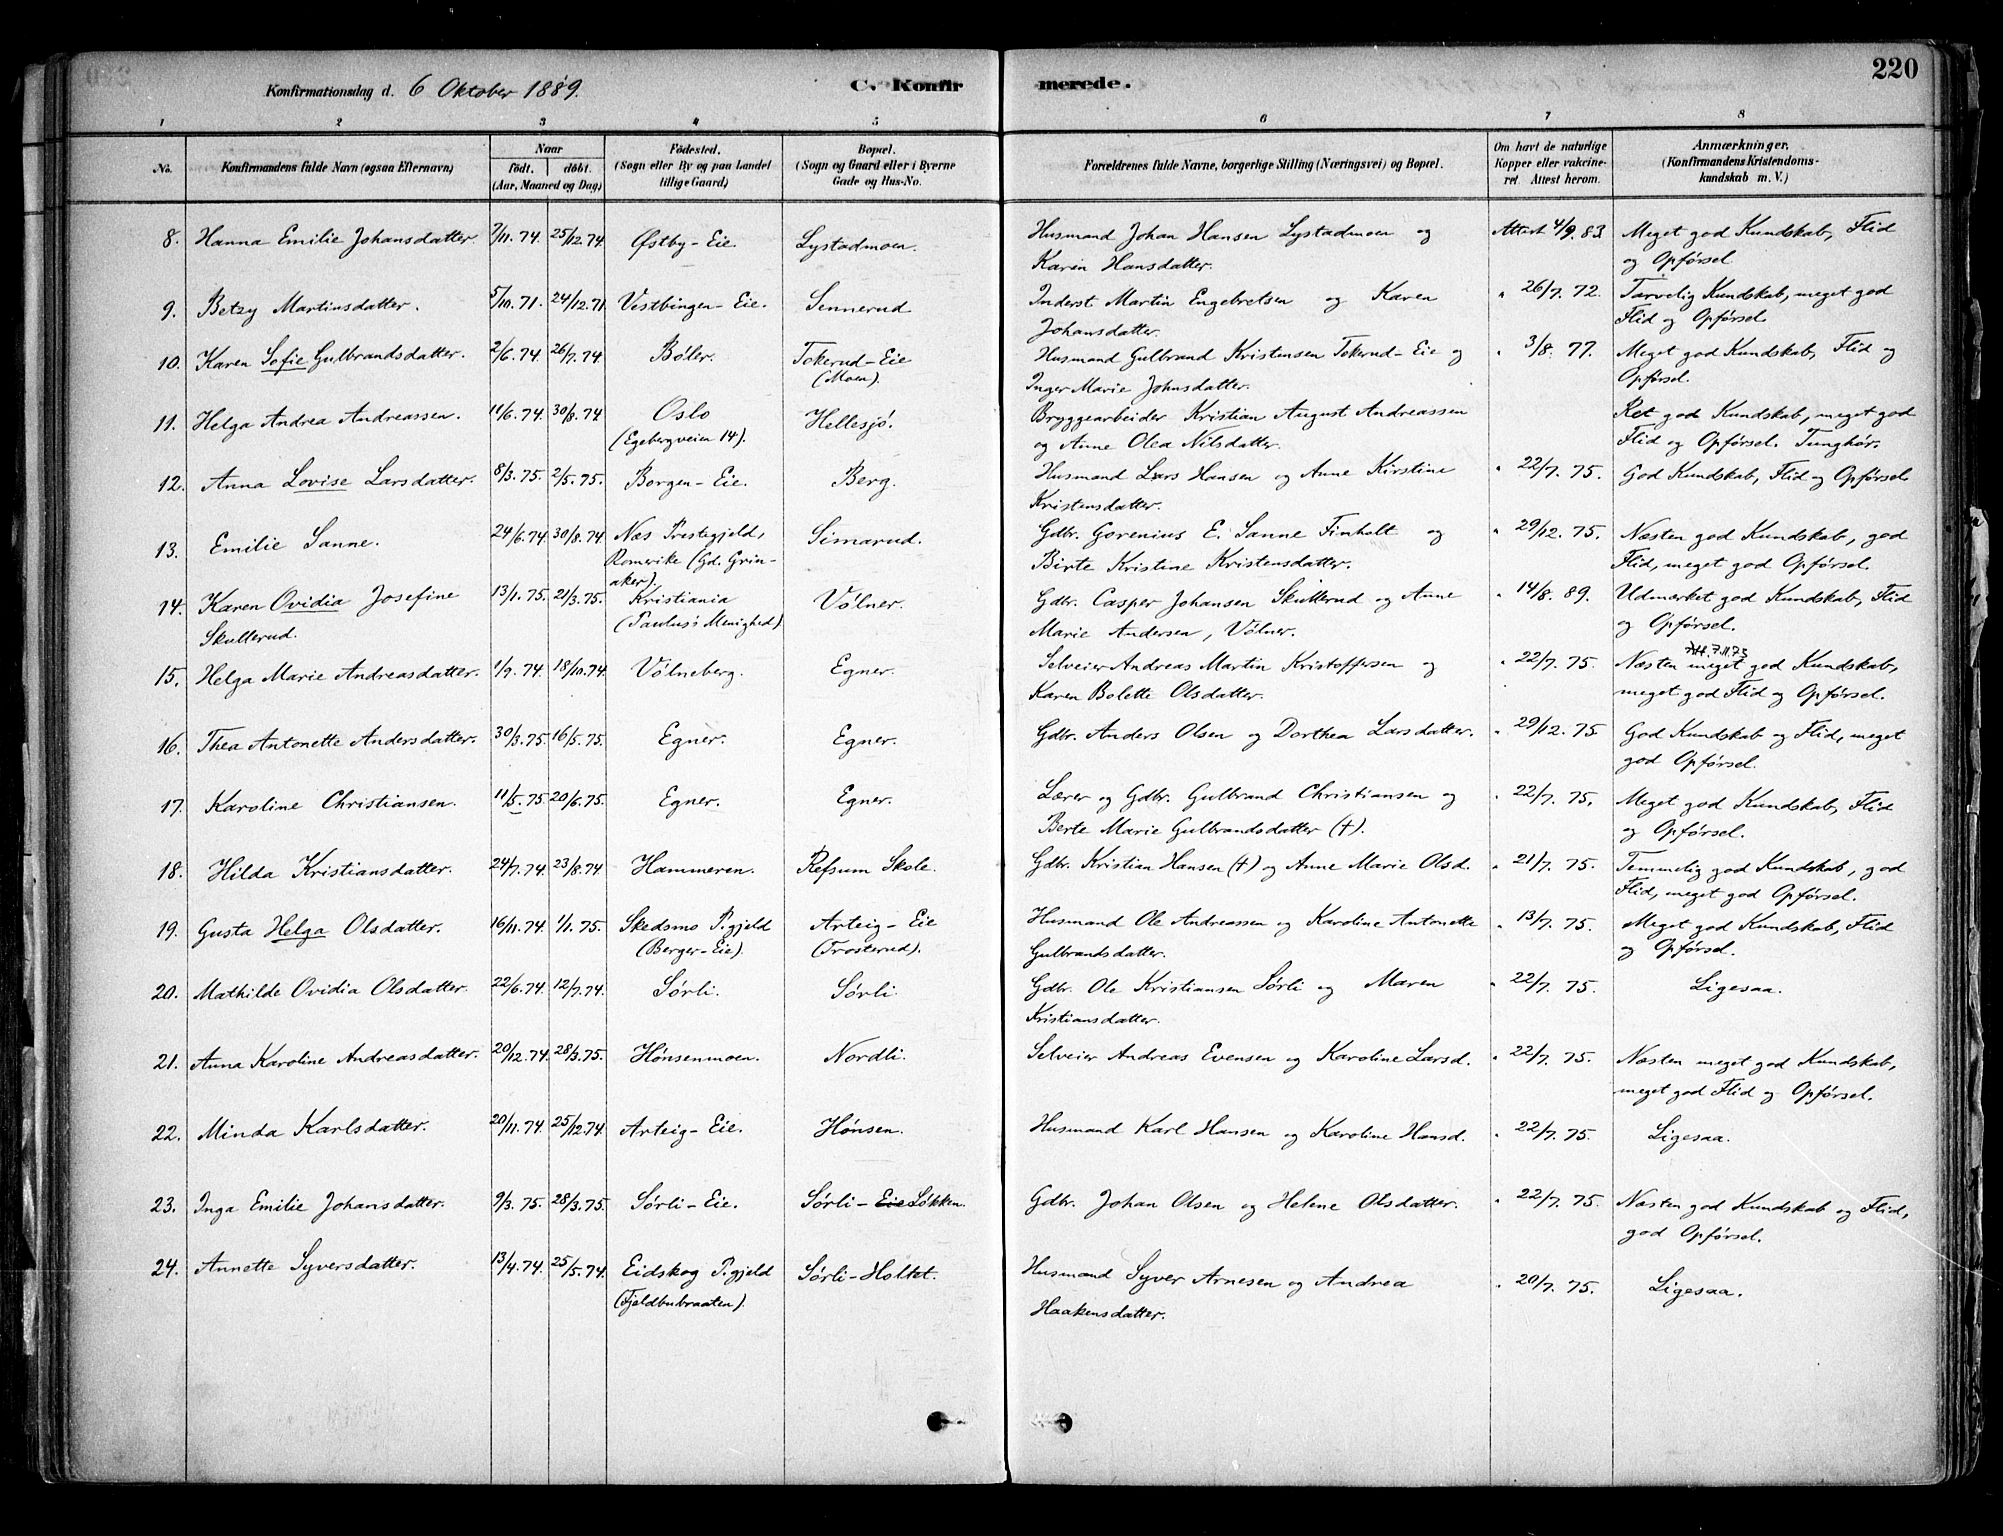 220
Konfirmationsdag d. 6 Oktober 1889.
C. Konfirmerede.
1 2 3 4 5 6 7 8
No.
Konfirmandens fulde Navn (ogsaa Efternavn)
Naar
født. døbt.
(Aar, Maaned og Dag)
Fødested.
(Sogn eller By og paa Landet
tillige Gaard)
Bopæl.
(Sogn og Gaard eller i Byerne
Gade og Hus-No.
Forældrenes fulde Navne, borgerlige Stilling (Næringsvei) og Bopæl.
Om havt de naturlige
Kopper eller vakcine-
ret. Attest herom.
Anmærkninger.
(Konfirmandens Kristendoms-
kundskab m. V.)
8. Hanna Emilie Johansdatter. 7/11.74. 25/12.74 Østby-Eie. Lystadmoen. Husmand Johan Hansen Lystadmoen og Attest 4/9.83. Meget god Kundskab, Flid
Karen Hansdatter. og Opførsel
9. Betzy Martinsdatter. 5/10.71. 24/12.71 Vestbingen-Eie. Sennerud Inderst Martin Engebretsen og Karen " 26/7.72. Tarvelig Kundskab, meget god
Johansdatter. Flid og Opførsel
10. Karen Sofie Gulbrandsdatter. 2/6.74. 26/7.74 Bøler. Tokerud-Eie Husmand Gulbrand Kristensen Tokerud-Eie og " 3/8.77. Meget god Kundskab, Flid og
(Moen). Inger Marie Johnsdatter. Opførsel.
11. Helga Andrea Andreassen. 11/6.74. 30/8.74 Oslo Hellesjø. Bryggearbeider Kristian August Andreassen Ret god Kundskab, meget god
(Egebergveien 14). og Anne Olea Nilsdatter. Flid og Opførsel. Tunghør.
12. Anna Lovise Larsdatter. 8/3.75. 2/5.75. Borgen-Eie. Berg. Husmand Lars Hansen og Anne Kirstine " 22/7.75. God Kundskab, Flid og Opførsel
Kristensdatter.
13. Emilie Sanne. 24/6.74. 30/8.74. Næs Prestegjeld, Simarud. Gdbr. Gorenius E. Sanne Finholt og " 29/12.75. Næsten god Kundskab, god
Romerike (Gd. Grin- Birte Kristine Kristensdatter. Flid, meget god Opførsel.
aker).
14. Karen Ovidia Josefine 13/1.75. 21/3.75. Kristiania Vølner. Gdbr. Casper Johansen Skullerud og Anne " 14/8.89. Udmærket god Kundskab, Flid
Skullerud. (Paulus's Menighed) Marie Andersen, Vølner. og Opførsel.
Att. 7.11.73
15. Helga Marie Andreasdatter. 1/9.74. 18/10.74. Vølneberg. Egner. Selveier Andreas Martin Kristoffersen og " 22/7.75. Næsten meget god Kundskab,
Karen Bolette Olsdatter. meget god Flid og Opførsel.
16. Thea Antonette Andersdatter. 30/3.75. 16/5.75. Egner. Egner. Gdbr. Anders Olsen og Dorthea Larsdatter. " 29/12.75. God Kundskab og Flid, meget
god Opførsel.
17. Karoline Christiansen. 11/5.75. 20/6.75. Egner. Egner. Lærer og Gdbr. Gulbrand Christiansen og " 22/7.75. Meget god Kundskab, Flid
Berte Marie Gulbrandsdatter (†). og Opførsel.
18. Hilda Kristiansdatter. 24/7.74. 23/8.74 Hammeren. Refsum Skole. Gdbr. Kristian Hansen (†) og Anne Marie Olsd. " 21/7.75. Temmelig god Kundskab, god
Flid, meget god Opførsel.
19. Gusta Helga Olsdatter. 16/11.74. 1/1.75. Skedsmo P.gjeld Arteig-Eie Husmand Ole Andreassen og Karoline Antonette " 13/7.75. Meget god Kundskab, Flid
(Berger-Eie). (Trosterud). Gulbrandsdatter. og Opførsel.
20. Mathilde Ovidia Olsdatter. 22/6.74. 12/7.74. Sørli. Sørli Gdbr. Ole Kristiansen Sørli og Maren " 22/7.75. Ligesaa.
Kristiansdatter.
21. Anna Karoline Andreasdatter. 20/12.74. 28/3.75. Hønsenmoen. Nordli. Selveier Andreas Evensen og Karoline Larsd. " 22/7.75. Næsten meget god Kundskab,
meget god Flid og Opførsel.
22. Minda Karlsdatter. 20/11.74. 25/12.74. Arteig-Eie. Hønsen. Husmand Karl Hansen og Karoline Hansd. " 22/7.75. Ligesaa.
23. Inga Emilie Johansdatter. 9/3.75. 28/3.75. Sørli-Eie. Sørli-Eie Løkken. Gdbr. Johan Olsen og Helene Olsdatter. " 22/7.75. Næsten god Kundskab og Flid,
god Opførsel.
24. Annette Syversdatter. 13/4.74. 25/5.74. Eidskog P.gjeld Sørli-Holtet. Husmand Syver Arnesen og Andrea " 20/7.75. Ligesaa.
(Fjeldbubraaten). Haakensdatter.